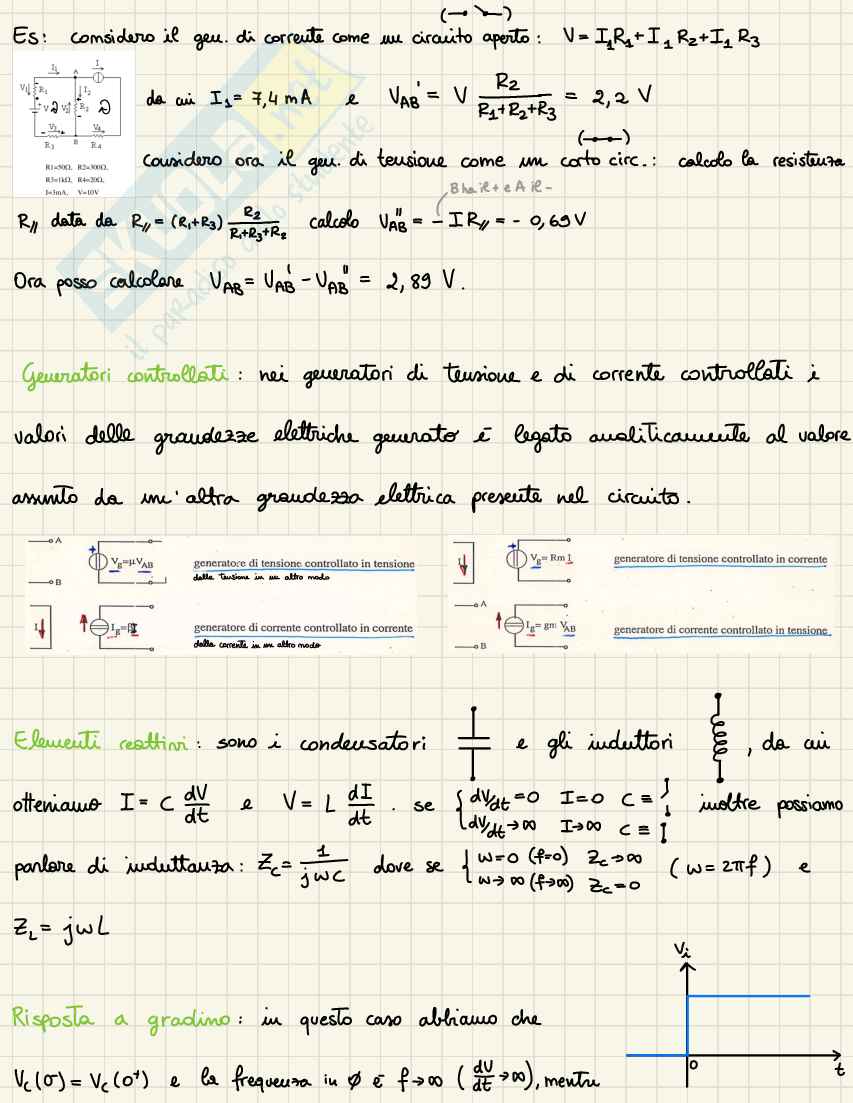 (•— •—)
Es: considero il gen. di corrente come un circuito aperto: V = I₁R₁ + I₁R₂ + I₁R₃
da cui I₁ = 7,4 mA e V_AB' = V R₂/(R₁+R₂+R₃) = 2,2 V
R1=50Ω, R2=300Ω,
R3=1kΩ, R4=20Ω,
I=3mA, V=10V
considero ora il gen. di tensione come un corto circ.: calcolo la resistenza
B ha il + e A il -
R// data da R// = (R₁+R₃) R₂/(R₁+R₃+R₂) calcolo V_AB'' = - I R// = - 0,69 V
Ora posso calcolare V_AB = V_AB' - V_AB'' = 2,89 V.
Generatori controllati: nei generatori di tensione e di corrente controllati i
valori delle grandezze elettriche generato è legato analiticamente al valore
assunto da un'altra grandezza elettrica presente nel circuito.
A B Vg=μVAB generatore di tensione controllato in tensione
dalla tensione in un altro modo
I Ig=βI generatore di corrente controllato in corrente
dalla corrente in un altro modo
I Vg= Rm I generatore di tensione controllato in corrente
A B Ig= gm VAB generatore di corrente controllato in tensione
Elementi reattivi: sono i condensatori e gli induttori , da cui
otteniamo I = C dV/dt e V = L dI/dt . se { dV/dt = 0 I=0 C ≡ ; dV/dt → ∞ I→∞ C ≡ inoltre possiamo
parlare di induttanza: Z_C = 1/(jωC) dove se { ω=0 (f=0) Z_C→∞ ; ω→∞ (f→∞) Z_C=0 (ω = 2πf) e
Z_L = jωL
Vi
0 t
Risposta a gradino: in questo caso abbiamo che
V_C(0⁻) = V_C(0⁺) e la frequenza in Ø è f→∞ (dV/dt →∞), mentre
SKUOLA.net
il paradiso dello studente